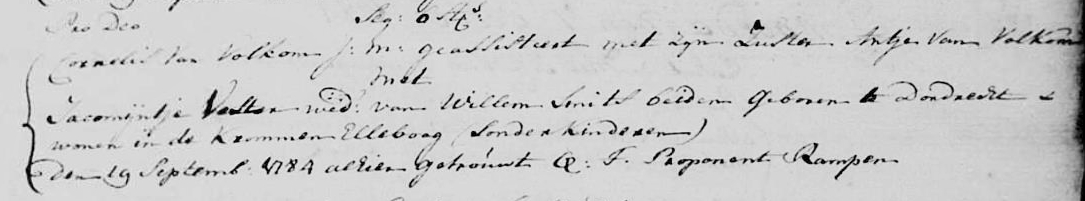 Pro Deo Seg: 6 St:
Cornelis Van Volkom j: m: geassisteert met zijn Zuster Antje Van Volkom
met
Jacomijntje Vester wed: van Willem Smits beiden Geboren te Dordrecht &
wonen in de Krommen Elleboog (Sonder kinderen)
den 19 Septemb: 1784 alhier getrouwt Q: F. Proponent Rampen